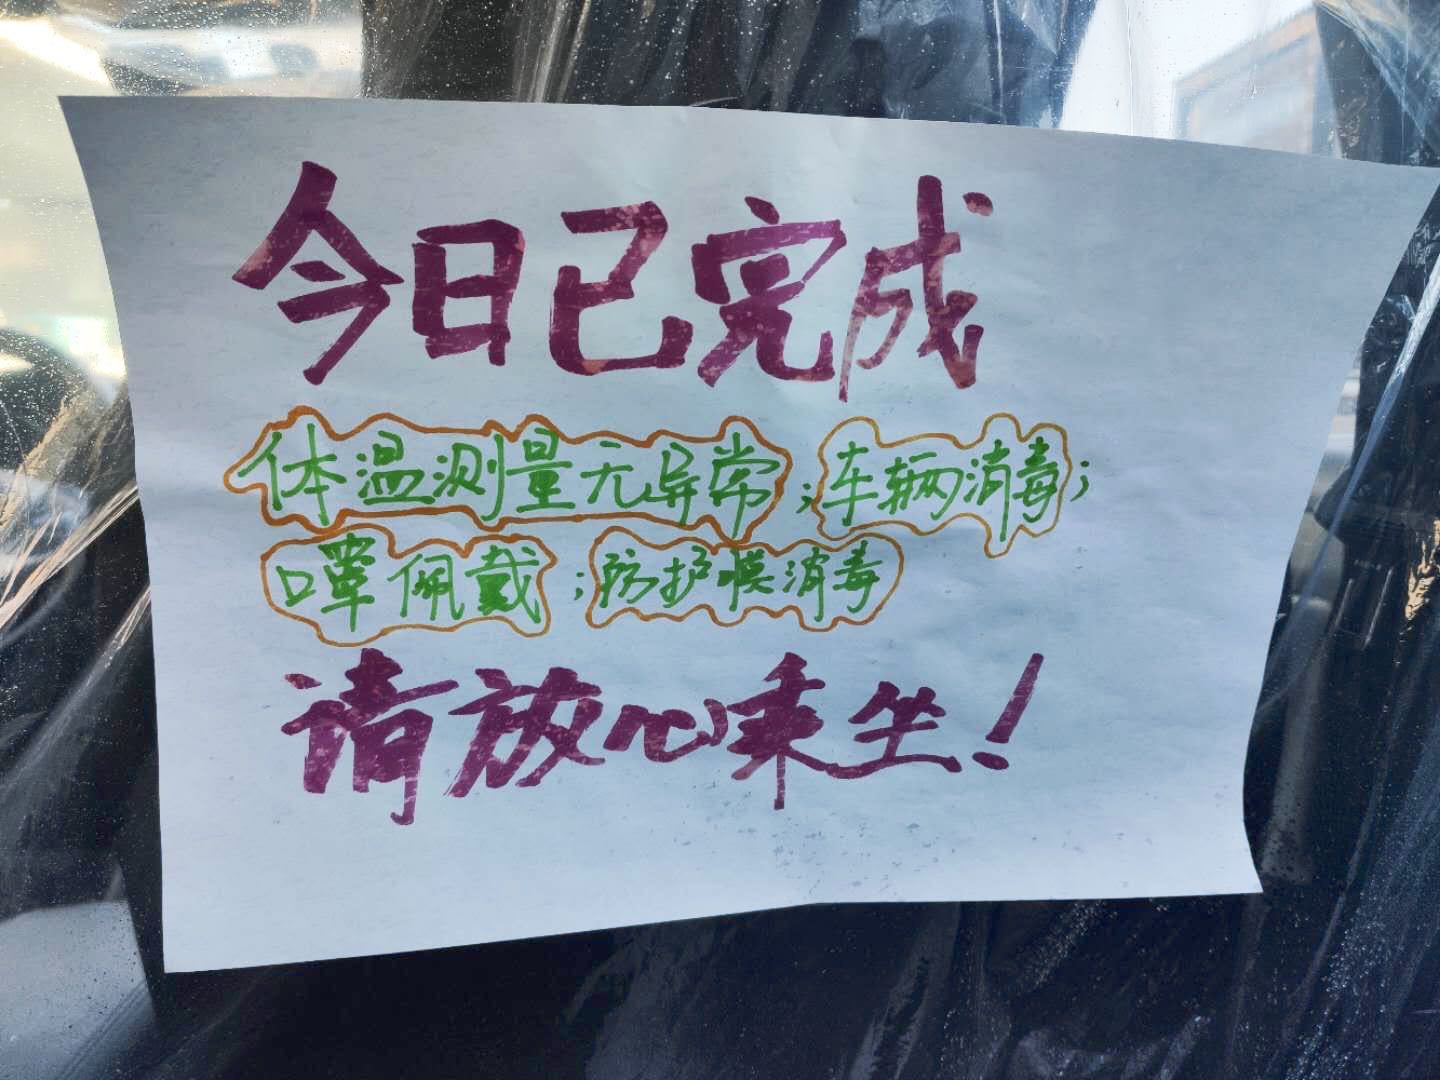 今日已完成
体温测量无异常;车辆消毒;
口罩佩戴;防护膜消毒
请放心乘坐!